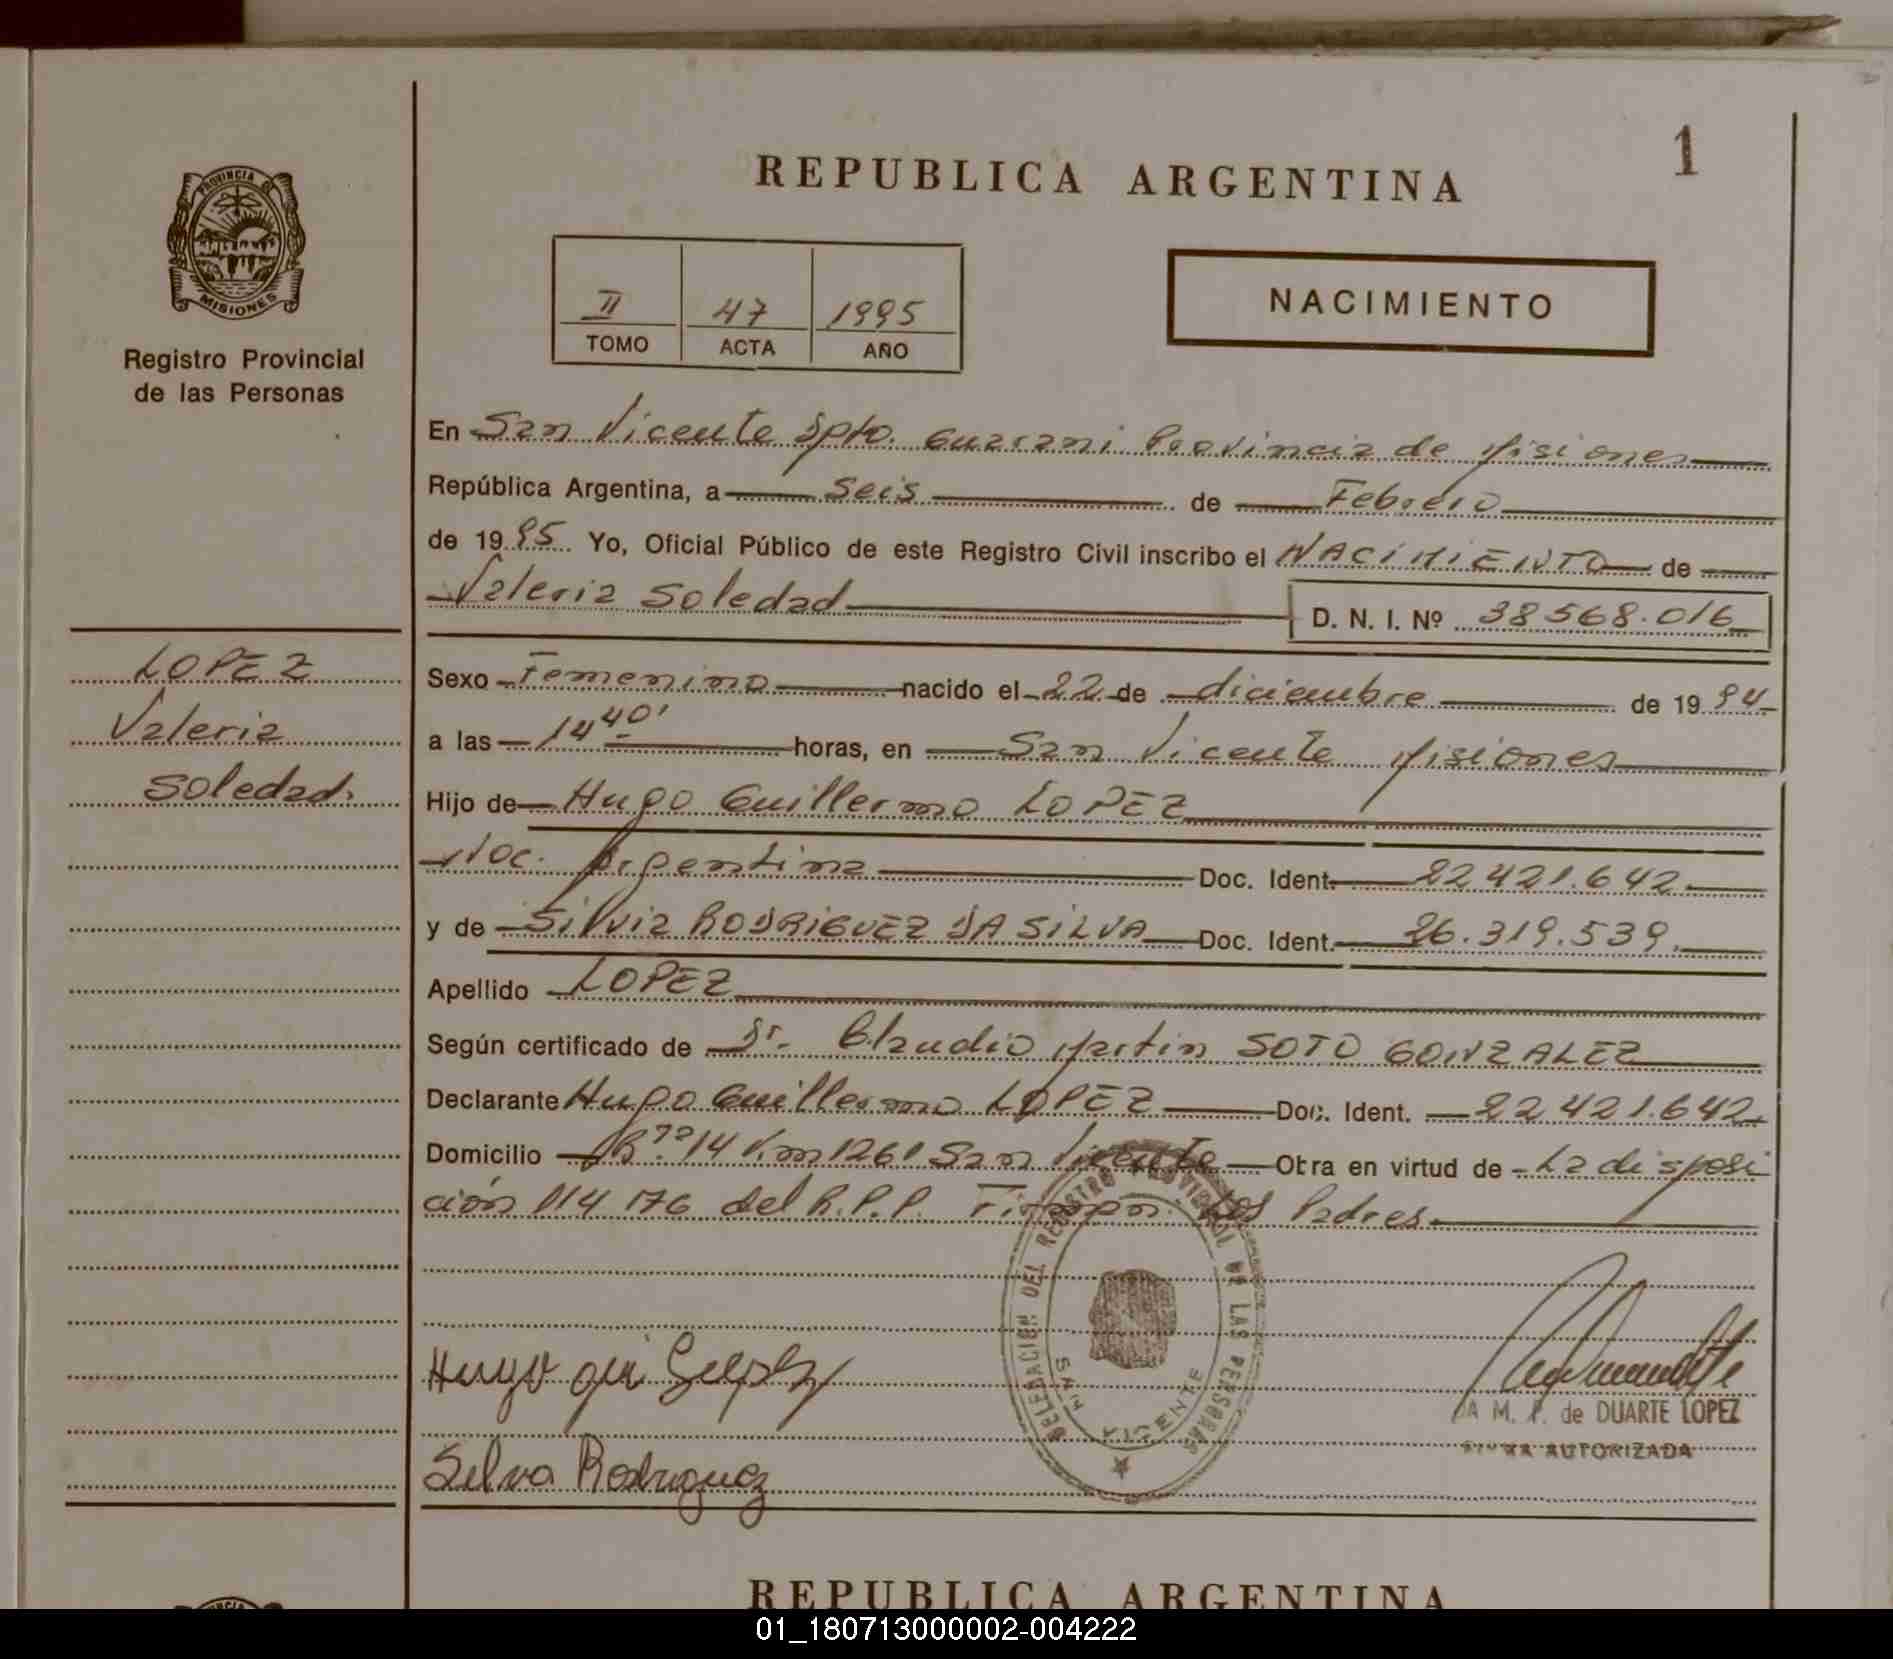 1
REPUBLICA ARGENTINA
PROVINCIA DE
MISIONES
Registro Provincial
de las Personas
II 47 1995
TOMO ACTA AÑO
NACIMIENTO
En San Vicente Dpto. Guarani Provincia de Misiones
República Argentina, a seis de Febrero
de 1995 Yo, Oficial Público de este Registro Civil inscribo el NACIMIENTO de
Valeria Soledad D. N. I. Nº 38568.016
LOPEZ
Valeria
Soledad.
Sexo Femenino nacido el 22 de diciembre de 1994
a las 14 40' horas, en San Vicente Misiones
Hijo de Hugo Guillermo LOPEZ
Nac. Argentina Doc. Ident. 22421.642
y de Silvia RODRIGUEZ DA SILVA Doc. Ident. 26.319.539.
Apellido LOPEZ
Según certificado de Dr. Claudio Martin SOTO GONZALEZ
Declarante Hugo Guillermo LOPEZ Doc. Ident. 22421.642
Domicilio 14 Km 1261 San Vicente Obra en virtud de La disposi
ción 114 176 del R.P.P. Firman Los Padres
DELEGACION DEL REGISTRO PROVINCIAL DE LAS PERSONAS
SAN VICENTE
Hugo gui
Silva Rodriguez
M. P. de DUARTE LOPEZ
FIRMA AUTORIZADA
REPUBLICA ARGENTINA
01_180713000002-004222